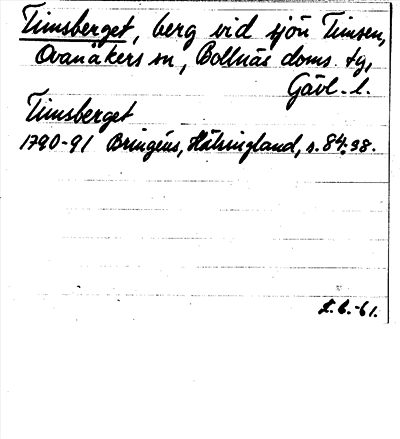 Timsberget, berg vid sjön Timsen,
Ovanåkers sn, Bollnäs doms. tg,
Gävl. l.
Timsberget
1790-91 Bringéus, Hälsingland, s. 84, 98.
L.b.-61.